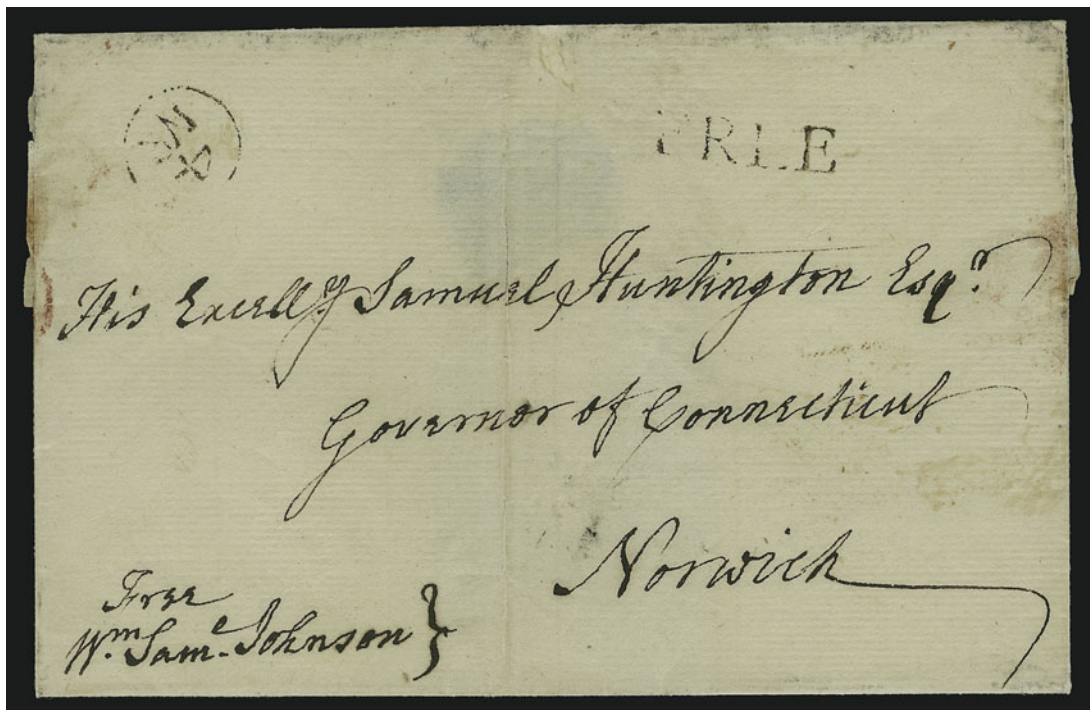 FREE
His Excell.y Samuel Huntington Esq.r
Governor of Connecticut
Norwich
Free
Wm. Saml. Johnson }